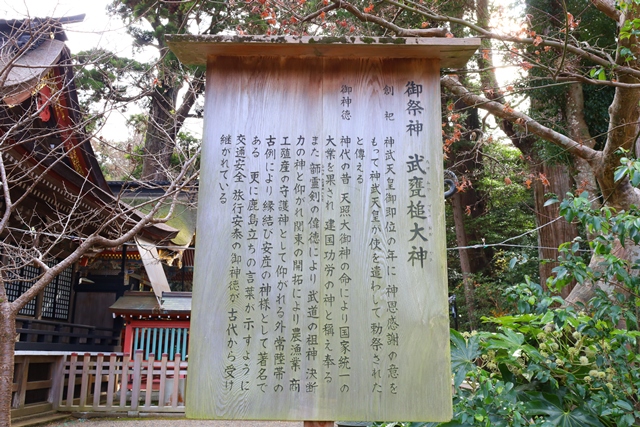 御祭神 武甕槌大神
たけみかづちのおおかみ
創祀 神武天皇御即位の年に 神恩感謝の意を
もって神武天皇が使を遣わして勅祭された
と傳える
御神徳 神代の昔 天照大御神の命により国家統一の
大業を果され 建国功労の神と稱え奉る
また 韴霊剣の偉徳により 武道の祖神 決断
力の神と仰がれ関東の開拓により 農漁業 商
工殖産の守護神として仰がれる外 常陸帯の
古例により 縁結び 安産の神様として著名で
ある 更に鹿島立ちの言葉が示すように
交通安全 旅行安泰の御神徳が 古代から受け
継がれている